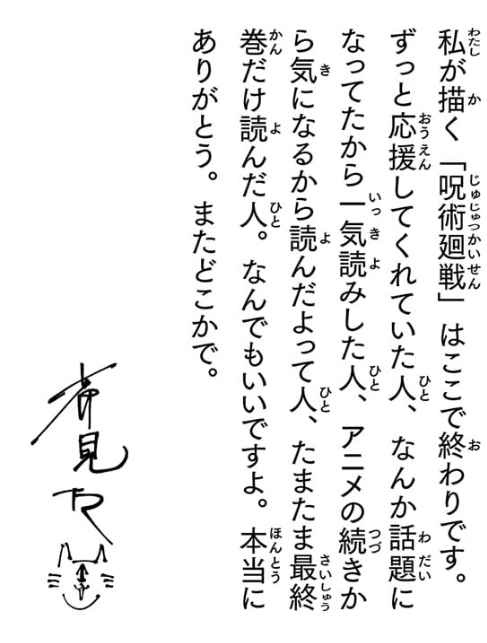 私が描く「呪術廻戦」はここで終わりです。
ずっと応援してくれていた人、なんか話題に
なってたから一気読みした人、アニメの続きか
ら気になるから読んだよって人、たまたま最終
巻だけ読んだ人。なんでもいいですよ。本当に
ありがとう。またどこかで。
芥見下々